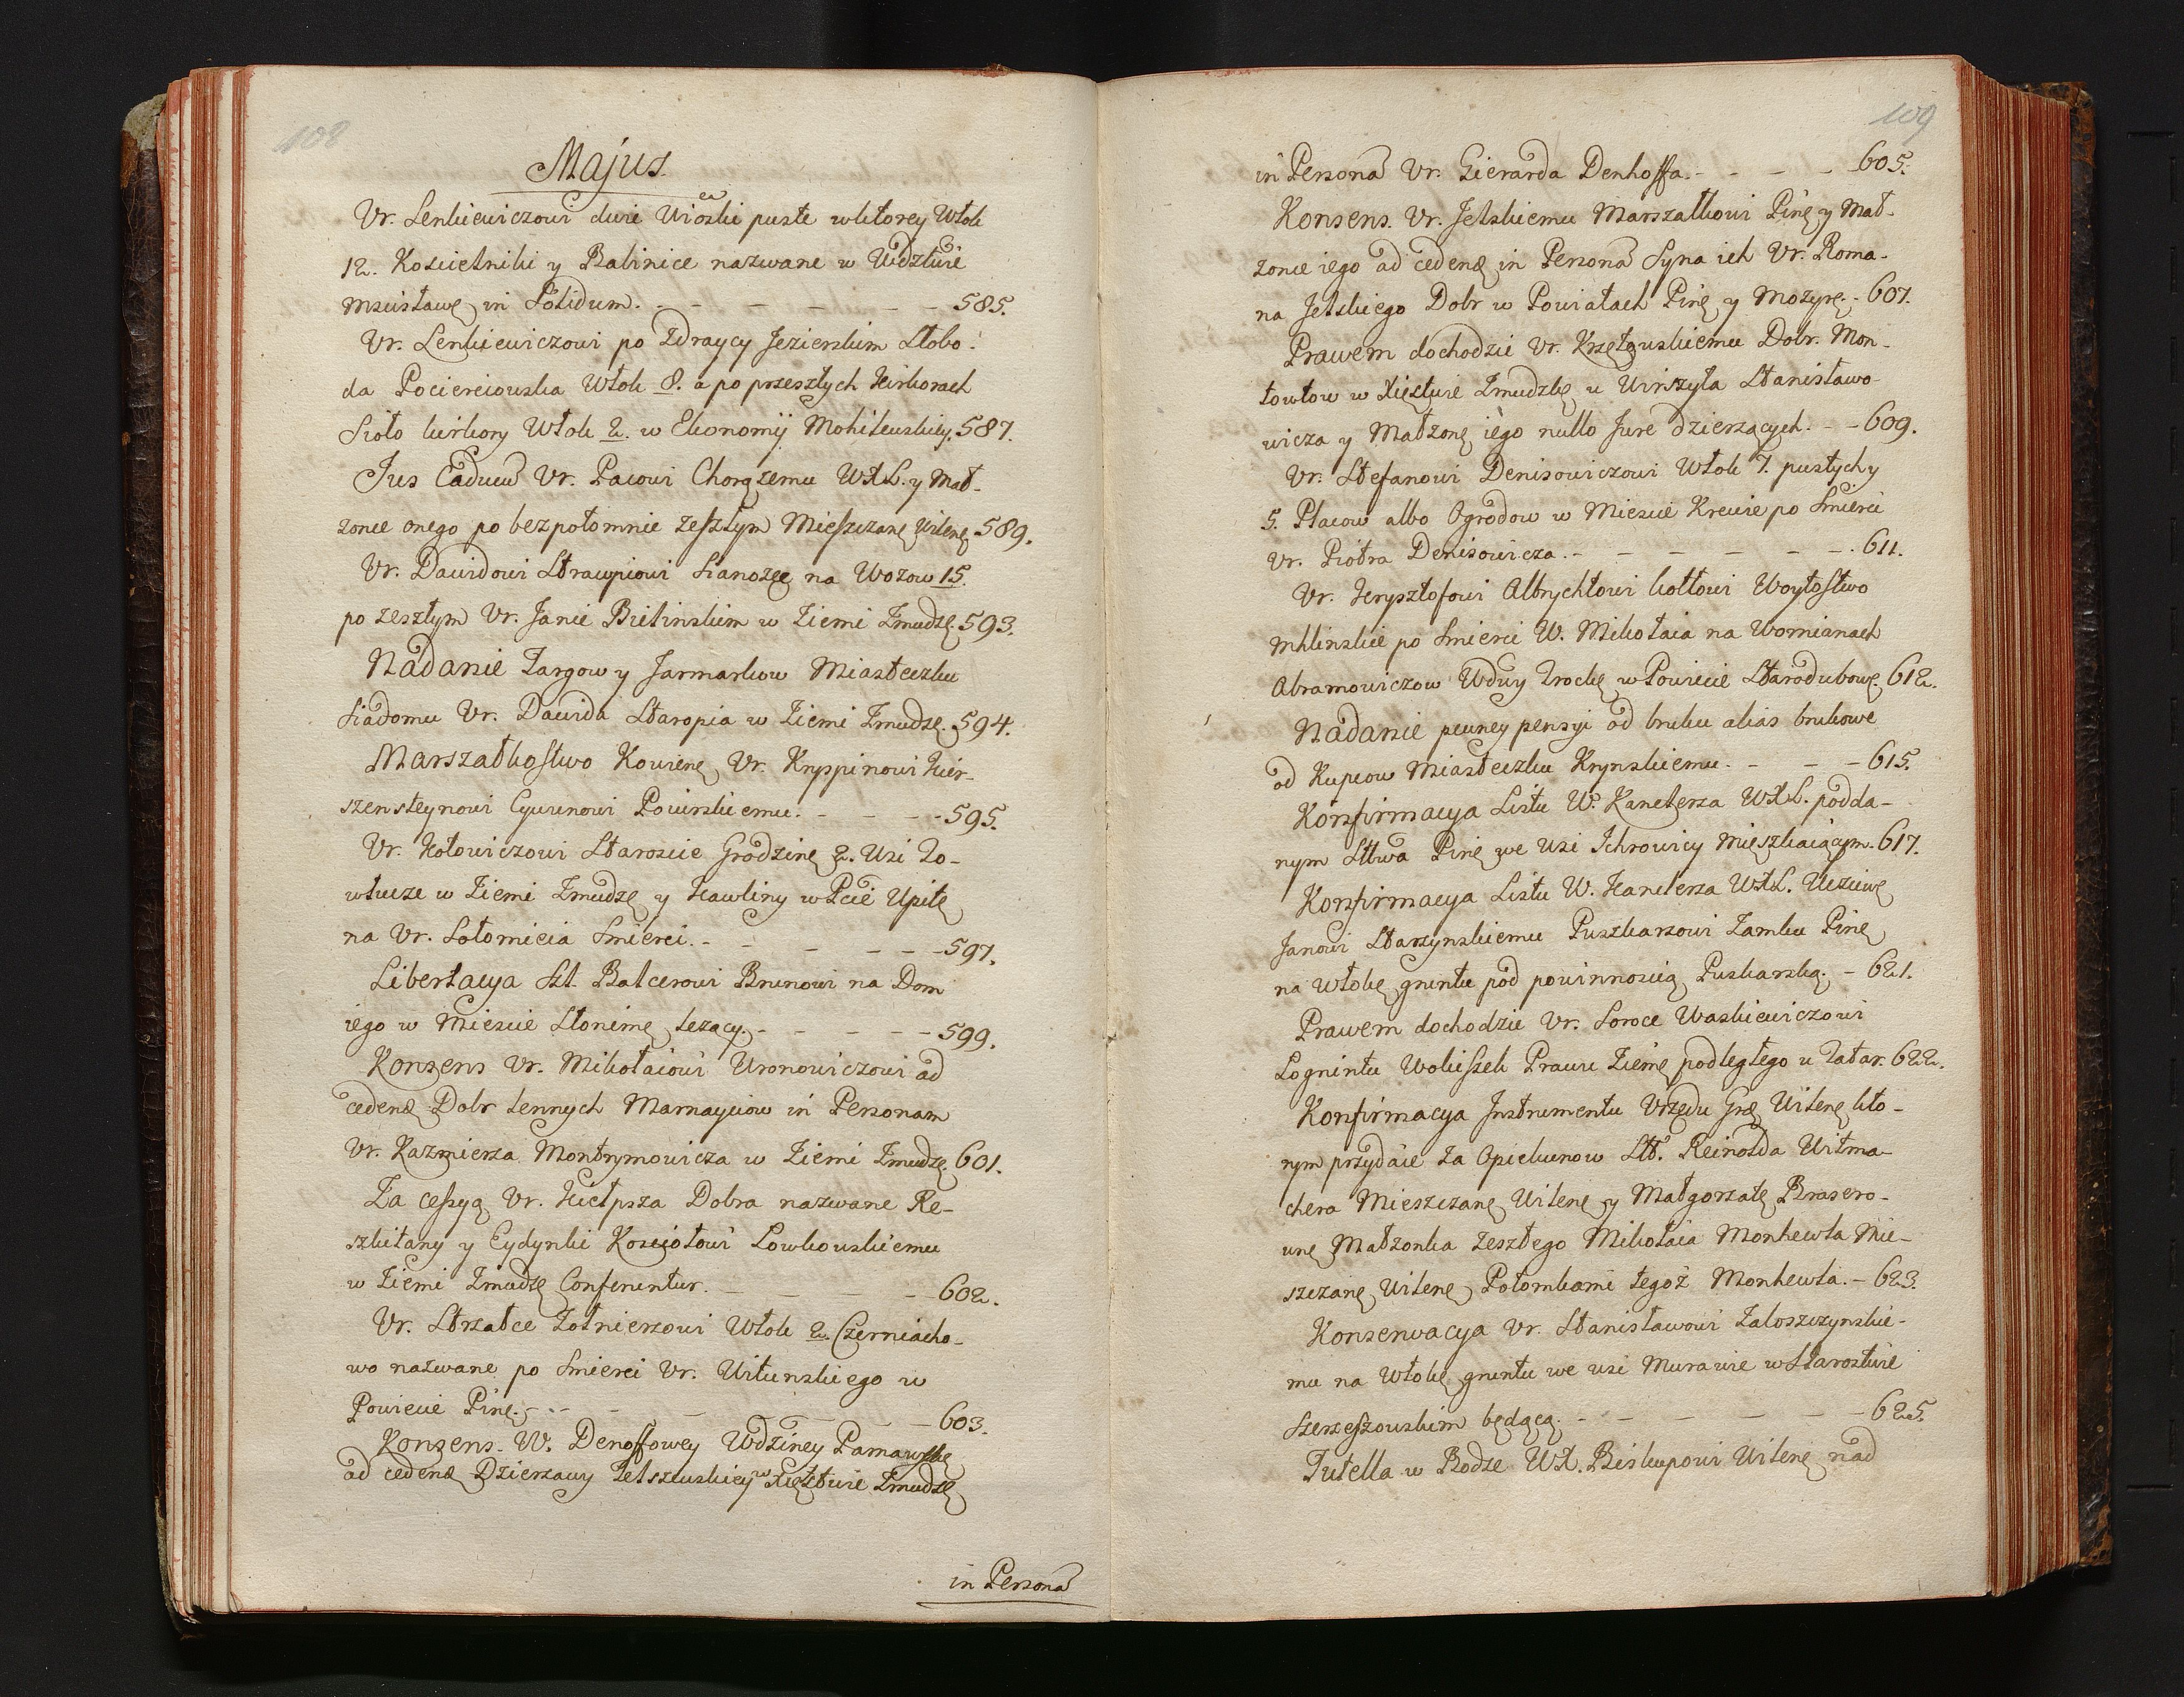 108
Majus.
Vr. Lenkiewiczowi dwie Wioski puste w ktorey Włok
12. Koscielniki y Babinice nazwane w Wdztwie
Mscisławę in Solidum. - - - - - 585.
Vr. Lenkiewiczowi po Zdraycy Jezierskim Słobo-
da Pocierciowska Włok 8. a po przeszłych Kirkorach
Sioło kirkory Włok 2. w Ekonomij Mohilewskiey. 587.
Jus Caduc͠u Vr. Pacowi Chorązemu WXL. y Mał-
zonce onego po bezpotomnie zeszłym Mieszczanę Wilenę 589.
Vr. Dawidowi Strawpiowi Sianozęć na Wozow 15.
po zeszłym Vr. Janie Bielinskim w Ziemi Zmudzę. 593.
Nadanie Targow y Jarmarkow Miasteczku
Siadomu Vr. Dawida Staropia w Ziemi Zmudzę. 594.
Marszałkostwo Kowienę Vr. Kryspinowi Kier-
szensteynowi Cywunowi Powirskiemu. - - - - 595.
Vr. Kołowiczowi Staroscie Grodzinę 2. Wsi To-
wkucze w Ziemi Zmudzę y Hawliny w Pcie Upitę
na Vr. Sołomicia Smierci. - - - - - 597.
Libertacya Sła. Balcerowi Brunowi na Dom
iego w Miescie Słonimę lezący. - - - - - 599.
Konsens Vr. Mikołaiowi Wronowiczowi ad
cedenđ Dobr lennych Marnayciow in Personam
Vr. Kazmierza Montrymowicza w Ziemi Zmudzę. 601.
Za cessyą Vr. Kiełpsza Dobra nazwane Re-
szkitany y Eydynki Kosciołowi Lowkowskiemu
w Ziemi Zmudzę Conferuntur. - - - - - 602.
Vr. Strzałce Zołnierzowi Włok 2. Czerniacho-
wo nazwane po Smierci Vr. Witunskiego w
Powiecie Pinę. - - - - - 603.
Konsens. W. Denoffowey Wdziney Parnawskę
ad cedenđ Dzierzawy Telszewskiey w Xięztwie Zmudzę
in Persona
109
in Persona Vr. Gierarda Denhoffa. - - - - 605.
Konsens. Vr. Jelskiemu Marszałkowi Pinę y Mał-
zonce iego ad cedenđ in Persona Syna ich Vr. Roma-
na Jelskiego Dobr w Powiatach Pinę y Mozyrę. - 607.
Prawem dochodzić Vr. Krzętowskiemu Dobr. Mon-
towtow w Xięztwie Zmudzkę u Wirszyła Stanisławo-
wicza y Małzonę iego nullo Jure dzierzących. - - 609.
Vr. Stefanowi Denisowiczowi Włok 7. pustych y
5. Placow albo Ogrodow w Miescie Krewie po Smierci
Vr. Piotra Denisowicza. - - - - - - 611.
Vr. Krysztofowi Albrychtowi kottowi Woytostwo
Mhlinskie po Smierci W. Mikołaia na Wornianach
Abramowiczow Wdwy Trockę w Powiecie Starodubowę. 612.
Nadanie pewney pensyi od bruku alias brukowe
od Kupcow Miasteczku Krynskiemu. - - - 615.
Konfirmacya Listu W. Kanclerza WXL. podda-
nym Sttwa Pinę we Wsi Ichrowicy mieszkaiącym. 617.
Konfirmacya Listu W. Kanclerza WXL. Uczciwę
Janowi Starzynskiemu Puszkarzowi Zamku Pinę
na Włokę gruntu pod powinnoscią Puskarską. - 621.
Prawem dochodzić Vr. Soroce Waskiewiczowi
Lo gruntu Wokiszek Prawu Ziemę podległego u Tatar. 622.
Konfirmacya Instrumentu Vrzędu Grđ Wilenę kto-
rym przydaie za Opiekunow Słł. Reinolda Witma-
chera Mieszczanę Wilenę y Małgorzatę Brasero-
wnę Małzonka zeszłego Mikołaia Monkewta Mie-
szczanę Wilenę Potomkami tegoż Monkewta. - 623.
Konserwacya Vr. Stanisławowi Zaloszczynskie-
mu na Włokę gruntu we wsi Murawie w Starostwie
Szereszowskim będącą. - - - - - - 625.
Tutella w Rodze WX. Biskupowi Wilenę nad